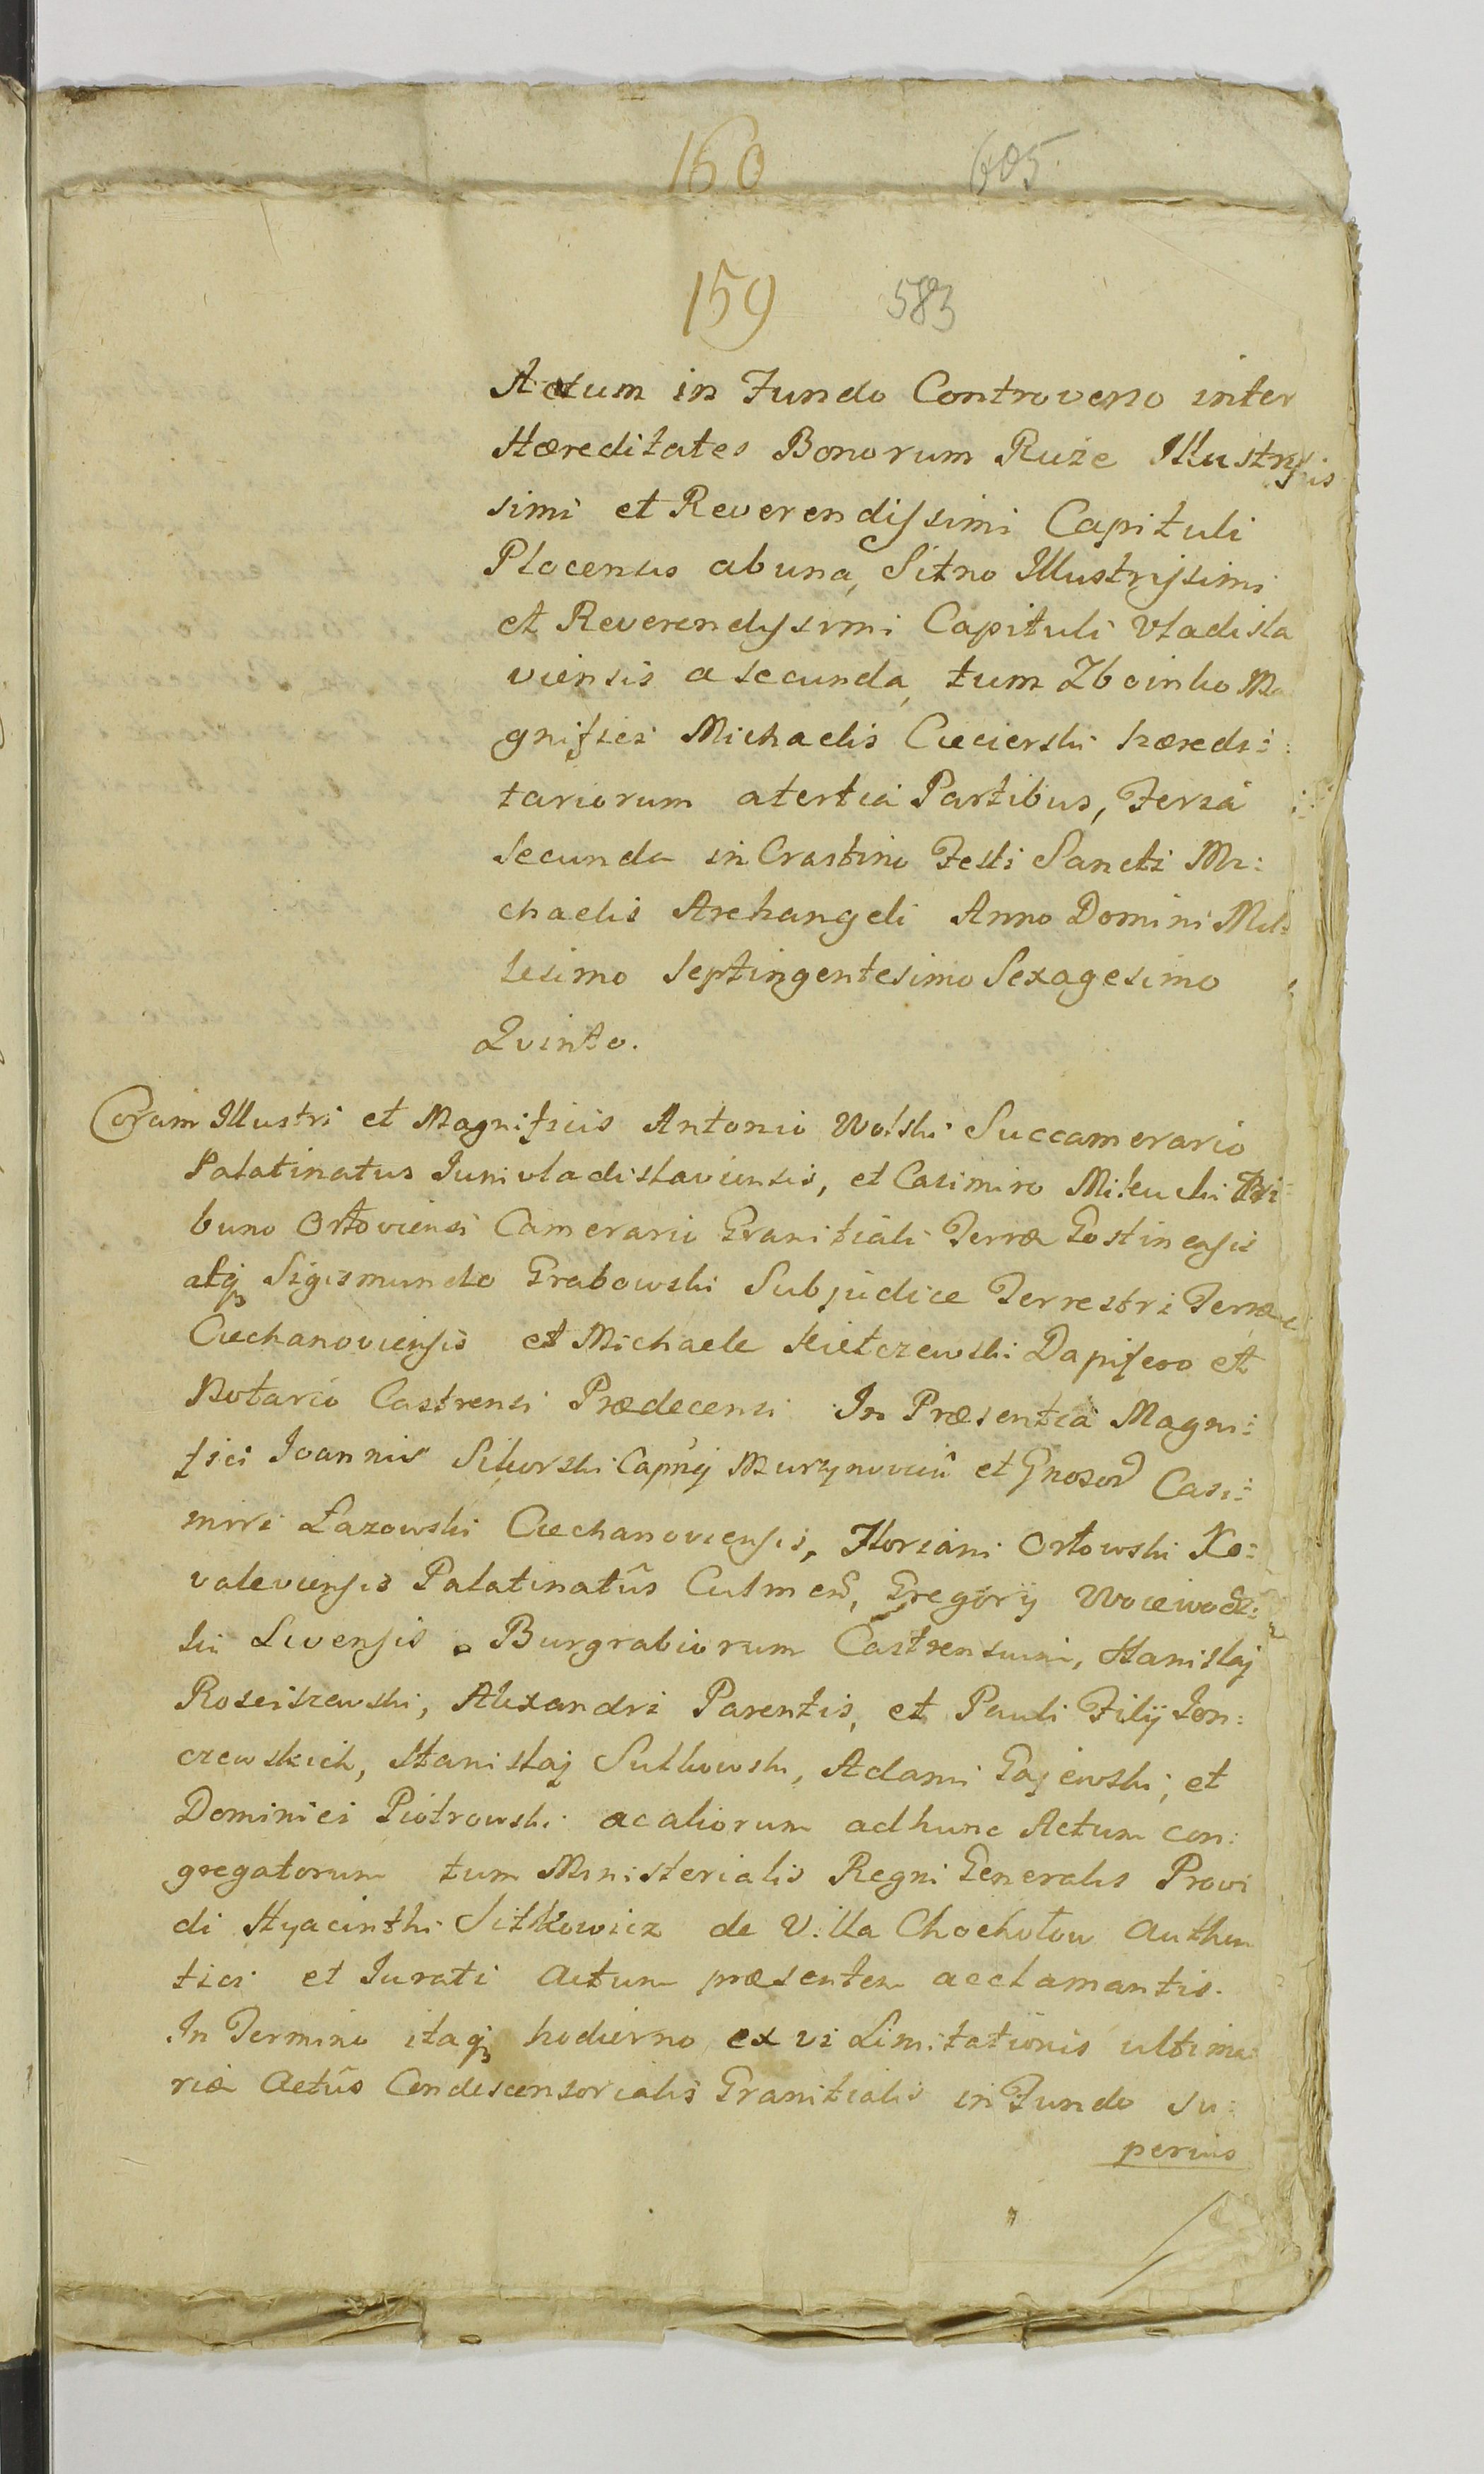 160 605.
159 583
Actum in Fundo Controverso inter
Hæreditates Bonorum Ruże Illustrissis
simi et Reverendissimi Capituli
Plocensis abuna, Sitno Illustrissimi
et Reverendissimi Capituli Vladisla
viensis a secunda, tum Zboinko Ma
gnifici Michaelis Ciecierski hæredi:
tariorum atertia Partibus, Feria
Secunda in Crastino Festi Sancti Mi:
chaelis Archangeli Anno Domini Mil:
lesimo Septingentesimo Sexagesimo
Qvinto.
Coram Illustri et Magnificis Antonio Wolski Succamerario
Palatinatus Junivladislaviensis, et Casimiro Mikucki Tri:
buno Orłoviensi Camerario Granitiali Terræ Gostinensis
atq Sigismundo Grabowski Subjudice Terrestri Terræ
Ciechanoviensis et Michaele Kiełczewski Dapifero et
Notario Castrensi Prædecensi In Præsentia Magni:
fici Joannis Sikorski Capnĳ Murzynoviên et Gnosor Casi:
miri Łazowski Ciechanoviensis, Floriani Orłowski Ko:
valeviensis Palatinatûs Culmen, Gregorij Wociwodz:
ki Livensis Burgrabiorum Castrensium, Stanislaj
Rosciszewski, Alexandri Parentis, et Pauli Filij Jon:
czewskich, Stanislaj Sulkowski, Adami Gajewski, et
Dominici Piotrowski ac aliorum adhunc Actum con:
gregatorum tum Ministerialis Regni Generalis Provi
di Hyacinthi Sitkowicz de Villa Chochołow Authen
tici et Jurati Actum præsentem acclamantis.
In Termino itaq hodierno ex vi Limitationis ultima
riæ Actûs Condescensorialis Granitialis in Fundo su:
perius